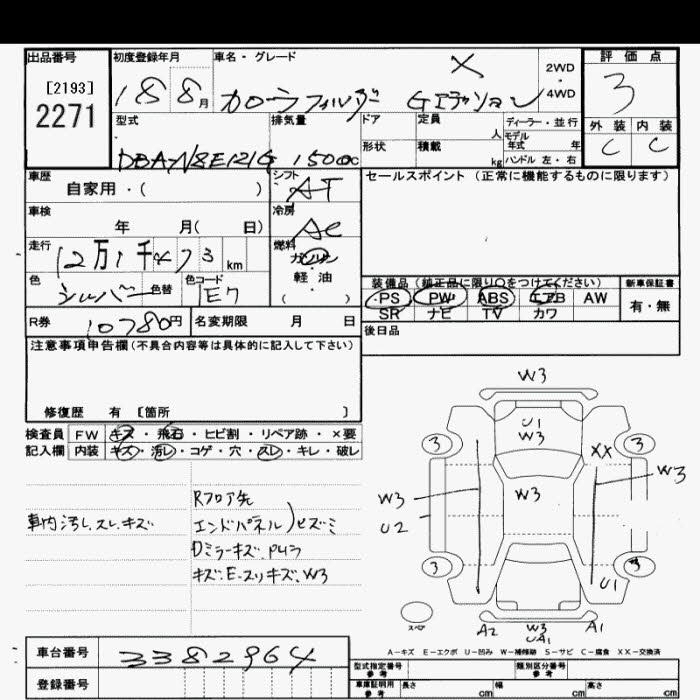 出品番号
[2193]
2271
初度登録年月
18 8月
車名・グレード
X
カローラフィルダー Gエディション
2WD
・
4WD
評価点
3
外装 内装
C C
型式
DBA-NZE121G
排気量
1500cc
ドア
形状
定員
人
積載
kg
ディーラー・並行
モデル
年式 年
ハンドル 左・右
車歴
自家用・( )
シフト
AT
車検
年 月( 日)
冷房
AC
走行
12万1千473km
燃料
ガソリン
軽・油
( )
色
シルバー
色替
色コード
1E7
R券
10780円
名変期限 月 日
セールスポイント (正常に機能するものに限ります)
装備品(純正品に限り○をつけてください)
PS PW ABS エアB AW
SR ナビ TV カワ
新車保証書
有・無
後日品
注意事項申告欄(不具合内容等は具体的に記入して下さい)
修復歴 有 [箇所 ]
検査員
記入欄
FW キズ・飛石・ヒビ割・リペア跡・×要
内装 キズ・汚レ・コゲ・穴・スレ・キレ・破レ
車内汚レ、スレ、キズ
Rフロア先
エンドパネル)ヒズミ
Dミラーキズ、
キズ、E-スリキズ、W3
W3
U1
W3
3
3
XX
W3
W3
W3
U2
3
3
U1
スペア
A2
W3
UA1
A1
A-キズ E-エクボ U-凹み W-補修跡 S-サビ C-腐食 XX-交換済
車台番号
3382964
登録番号
型式指定番号
参考
類別区分番号
参考
車庫証明用
参考
長さ cm
幅 cm
高さ cm